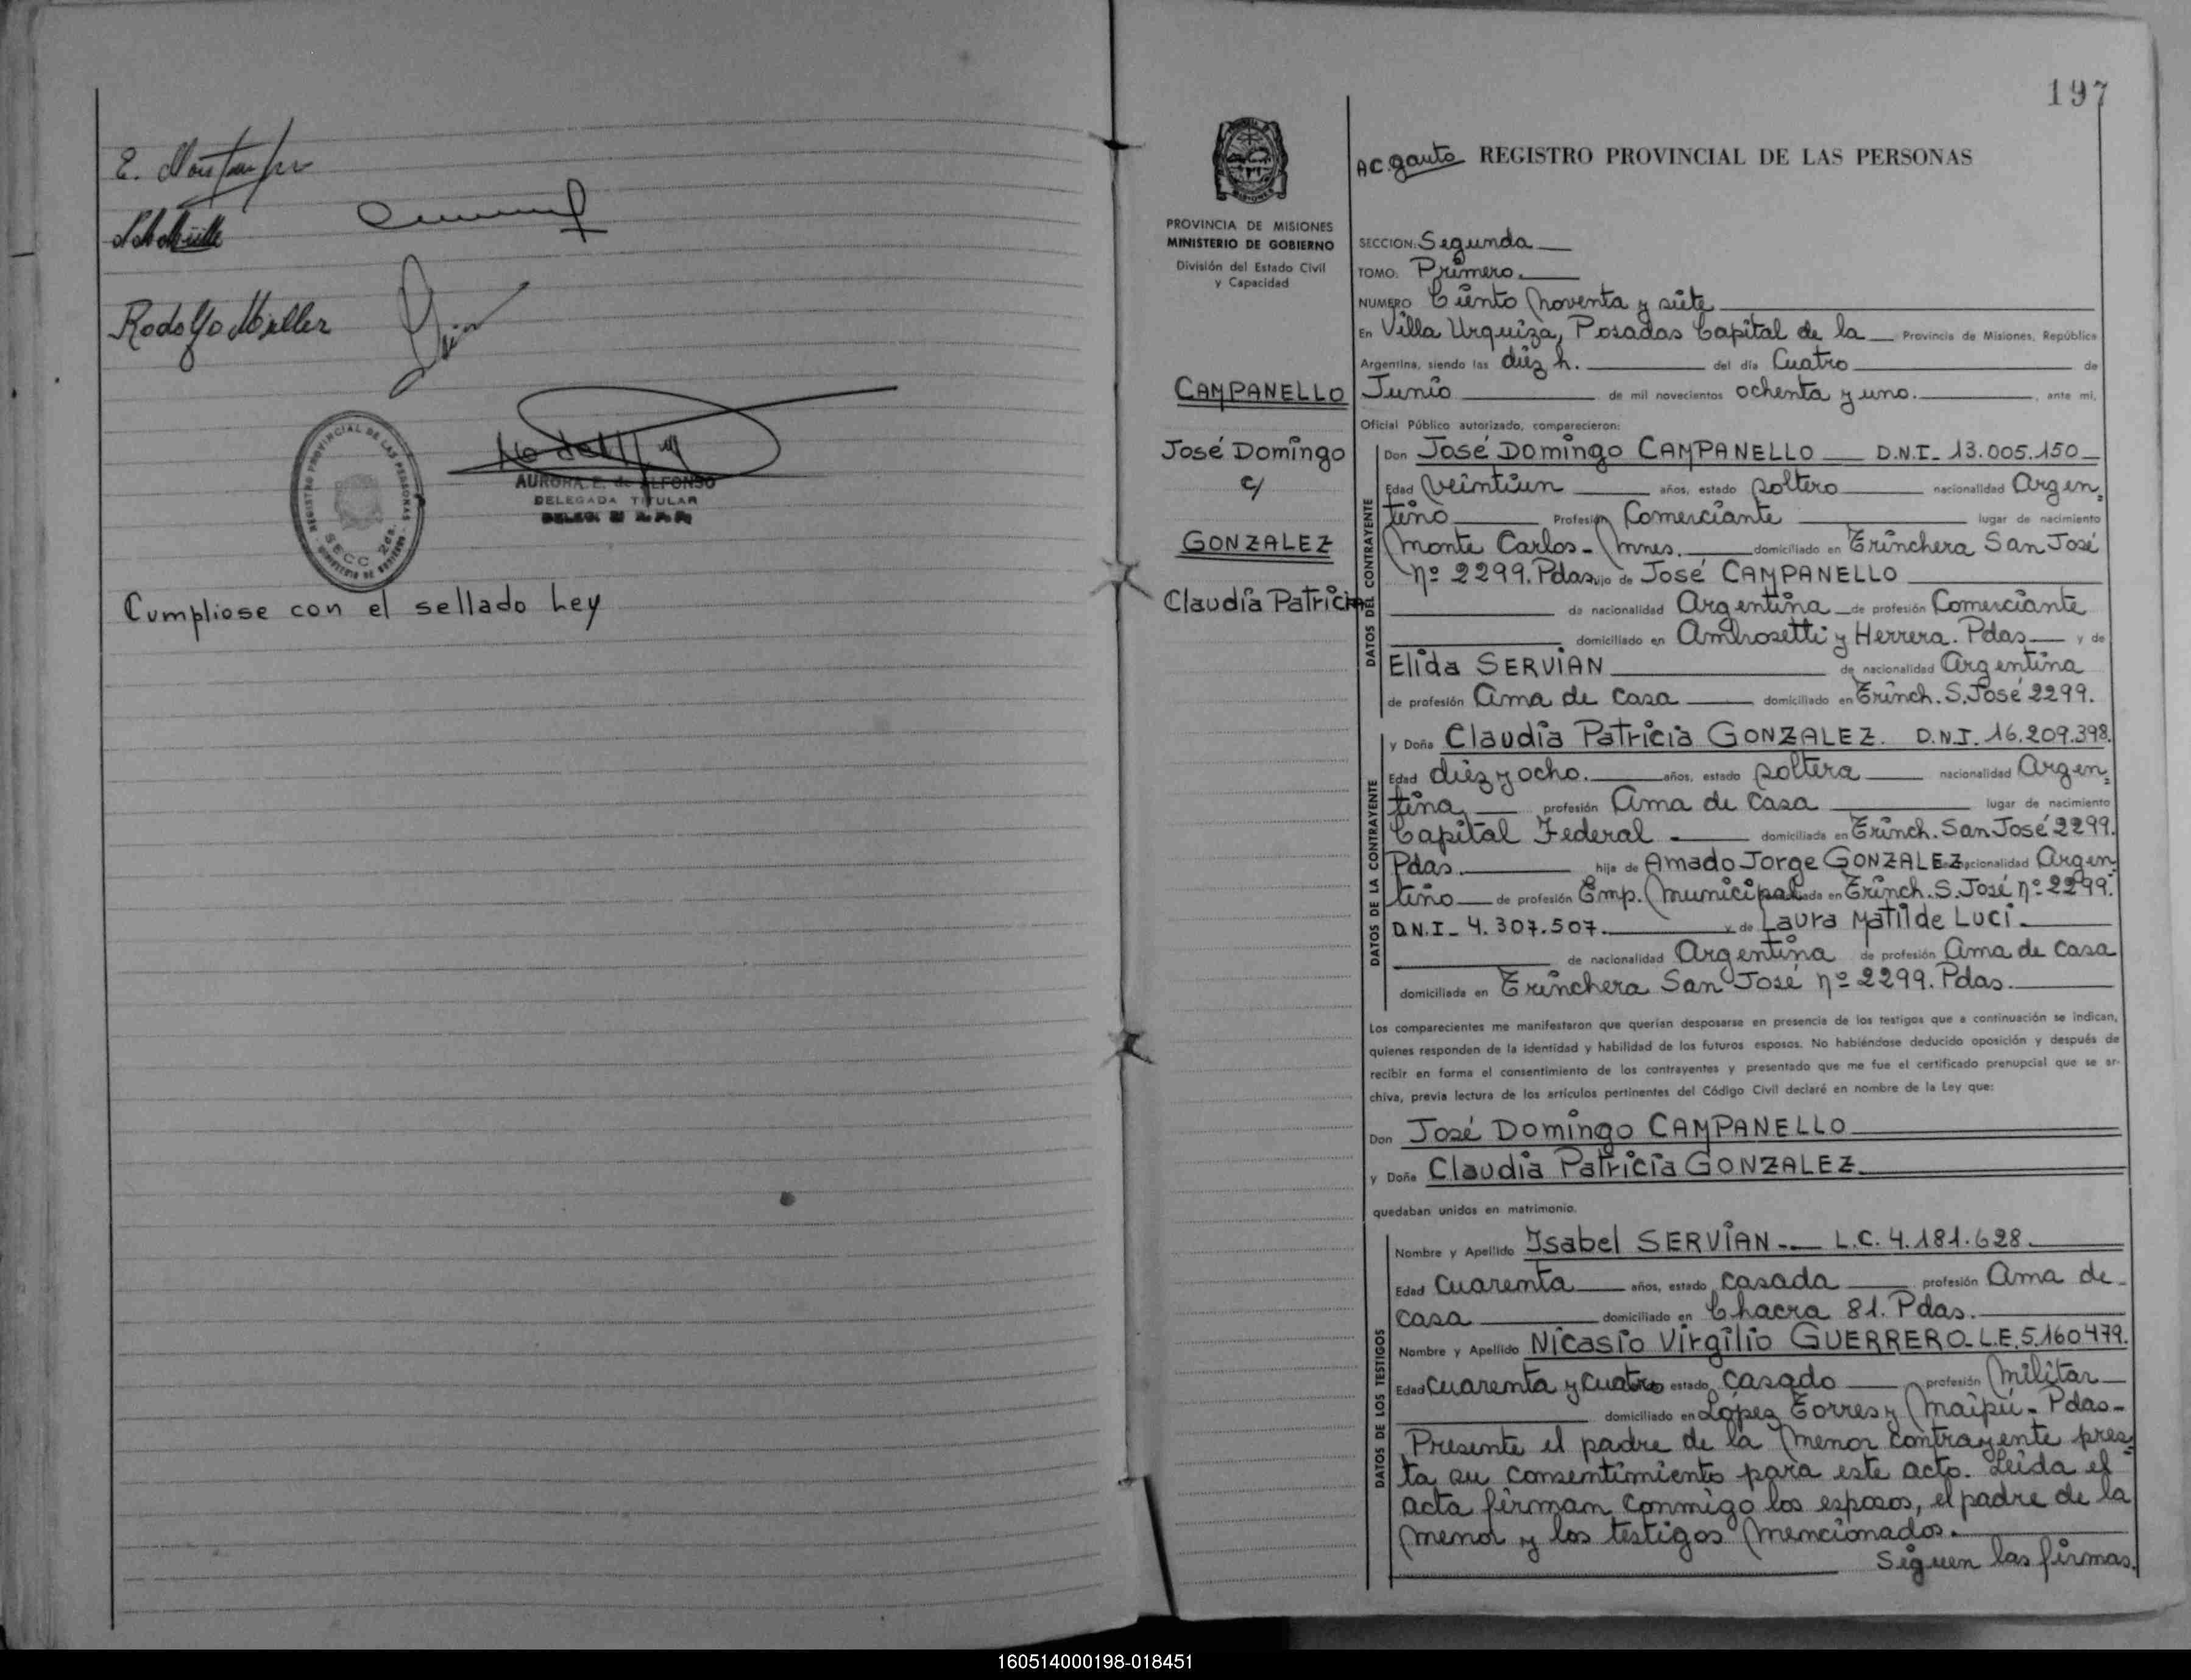 Rodolfo Müller
REGISTRO PROVINCIAL DE LAS PERSONAS
SECC 2da.
AURORA E. de ALFONSO
DELEGADA TITULAR
Cumpliose con el sellado Ley
197
PROVINCIA DE MISIONES
MINISTERIO DE GOBIERNO
División del Estado Civil
y Capacidad
CAMPANELLO
José Domingo
c/
GONZALEZ
Claudia Patricia
AC. gauto REGISTRO PROVINCIAL DE LAS PERSONAS
SECCION: Segunda
TOMO: Primero.
NUMERO Ciento noventa y siete
En Villa Urquiza, Posadas Capital de la Provincia de Misiones, República
Argentina, siendo las diez h. del día Cuatro de
Junio de mil novecientos ochenta y uno. , ante mí,
Oficial Público autorizado, comparecieron:
DATOS DEL CONTRAYENTE
Don José Domingo CAMPANELLO D.N.I- 13.005.150
Edad veintiun años, estado soltero nacionalidad Argen=
tino Profesión Comerciante lugar de nacimiento
Monte Carlos- Mnes. domiciliado en Trinchera San José
nº 2299. Pdas. hijo de José CAMPANELLO
de nacionalidad Argentina de profesión Comerciante
domiciliado en Ambrosetti y Herrera. Pdas y de
Elida SERVIAN de nacionalidad Argentina
de profesión Ama de casa domiciliado en Trinch. S. José 2299.
DATOS DE LA CONTRAYENTE
y Doña Claudia Patricia GONZALEZ. D.N.I. 16.209.398.
Edad diez y ocho. años, estado soltera nacionalidad Argen=
tina profesión Ama de casa lugar de nacimiento
Capital Federal domiciliada en Trinch. San José 2299.
Pdas. hija de Amado Jorge GONZALEZ de nacionalidad Argen
tino de profesión Emp. Municipal domiciliada en Trinch. S. José nº 2299.
D.N.I- 4.307.507. y de Laura Matilde Luci.
de nacionalidad Argentina de profesión Ama de casa
domiciliada en Trinchera San José nº 2299. Pdas.
Los comparecientes me manifestaron que querían desposarse en presencia de los testigos que a continuación se indican,
quienes responden de la identidad y habilidad de los futuros esposos. No habiéndose deducido oposición y después de
recibir en forma el consentimiento de los contrayentes y presentado que me fue el certificado prenupcial que se ar-
chiva, previa lectura de los artículos pertinentes del Código Civil declaré en nombre de la Ley que:
Don José Domingo CAMPANELLO
y Doña Claudia Patricia GONZALEZ.
quedaban unidos en matrimonio.
DATOS DE LOS TESTIGOS
Nombre y Apellido Isabel SERVIAN- L.C. 4.181.628.
Edad Cuarenta años, estado casada profesión Ama de
casa domiciliado en Chacra 81. Pdas.
Nombre y Apellido Nicasio Virgilio GUERRERO- L.E. 5.160479.
Edad Cuarenta y cuatro estado casado profesión Militar
domiciliado en López Torres y Maipú- Pdas-
Presente el padre de la menor contrayente pres=
ta su consentimiento para este acto. Leida el
acta firman conmigo los esposos, el padre de la
menor y los testigos mencionados.
Siguen las firmas.
160514000198-018451